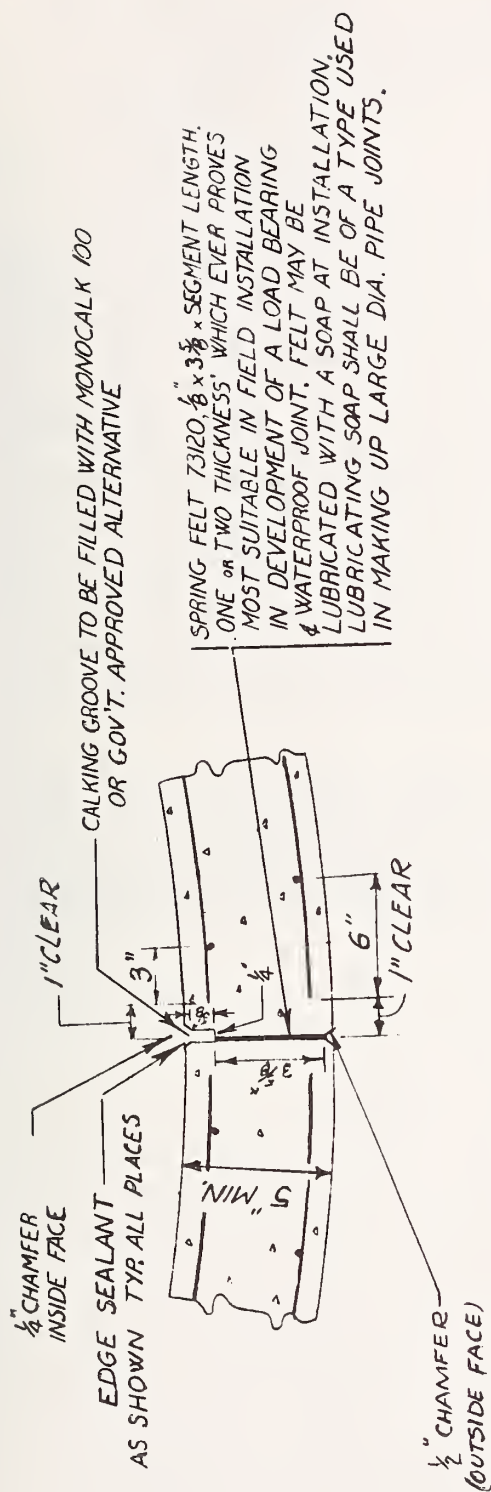 ¼" CHAMFER
INSIDE FACE
EDGE SEALANT
AS SHOWN TYP. ALL PLACES
1" CLEAR
CALKING GROOVE TO BE FILLED WITH MONOCALK 100
OR GOV'T. APPROVED ALTERNATIVE
3"
¼"
5" MIN.
6"
1" CLEAR
½" CHAMFER
(OUTSIDE FACE)
SPRING FELT 73120, ⅛" x 3⅝ x SEGMENT LENGTH.
ONE OR TWO THICKNESS' WHICH EVER PROVES
MOST SUITABLE IN FIELD INSTALLATION
IN DEVELOPMENT OF A LOAD BEARING
& WATERPROOF JOINT. FELT MAY BE
LUBRICATED WITH A SOAP AT INSTALLATION.
LUBRICATING SOAP SHALL BE OF A TYPE USED
IN MAKING UP LARGE DIA. PIPE JOINTS.